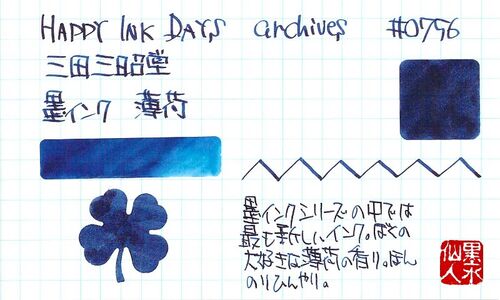 HAPPY INK DAYS archives #0756
三田三昭堂
墨インク 薄荷
墨インクシリーズの中では
最も新しいインク。ぼくの
大好きな薄荷の香り。ほん
のりひんやり。
墨水
仙人